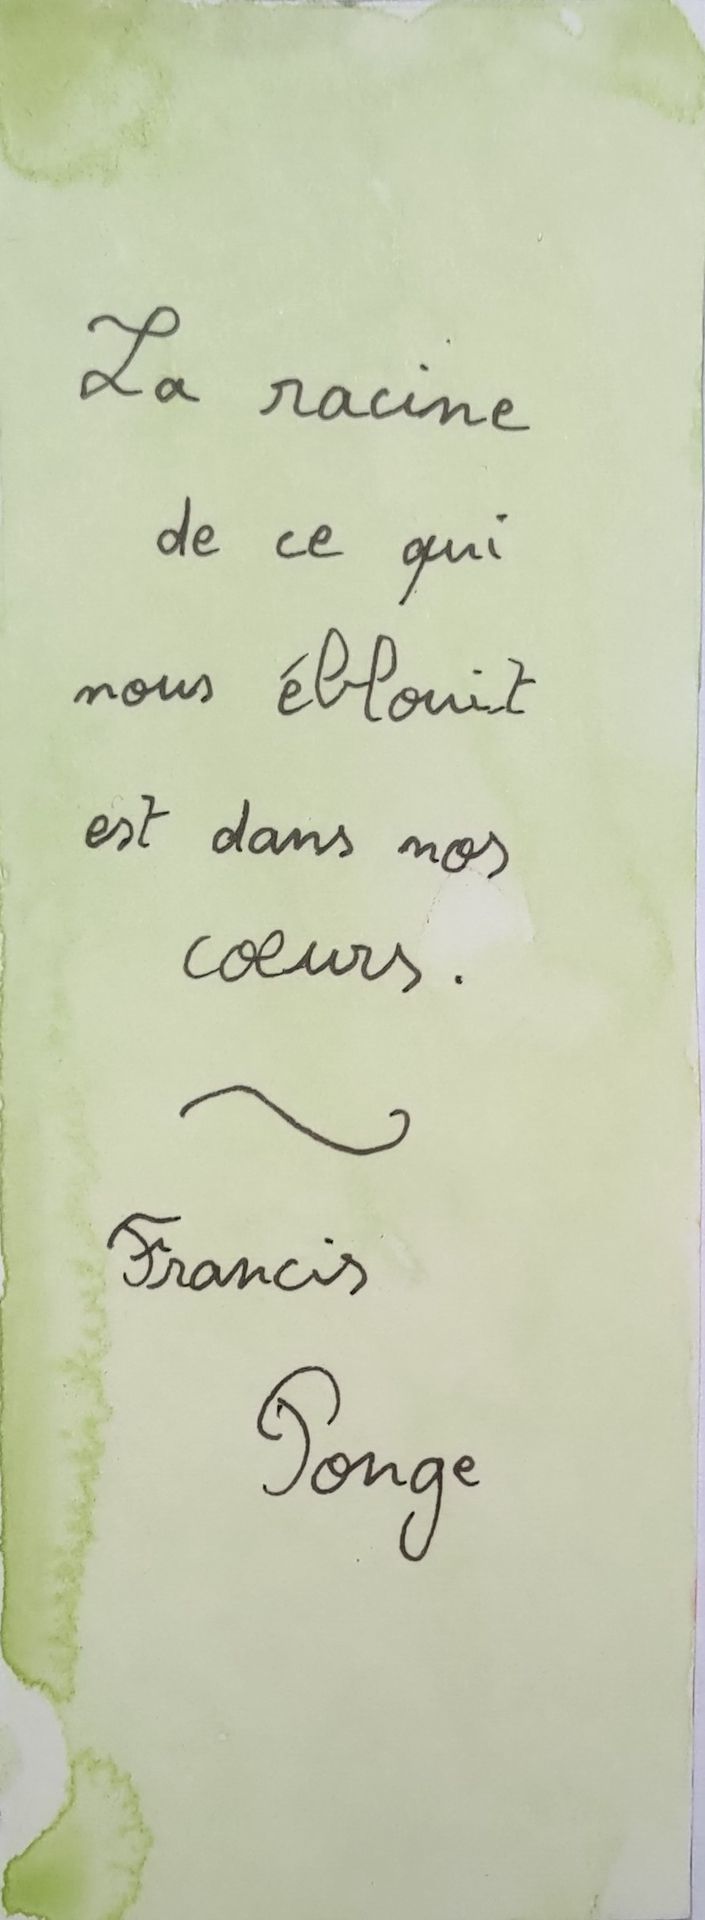 La racine
de ce qui
nous éblouit
est dans nos
cœurs.
Francis
Ponge